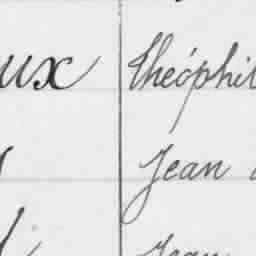 ux Théophil
Jean
Jean